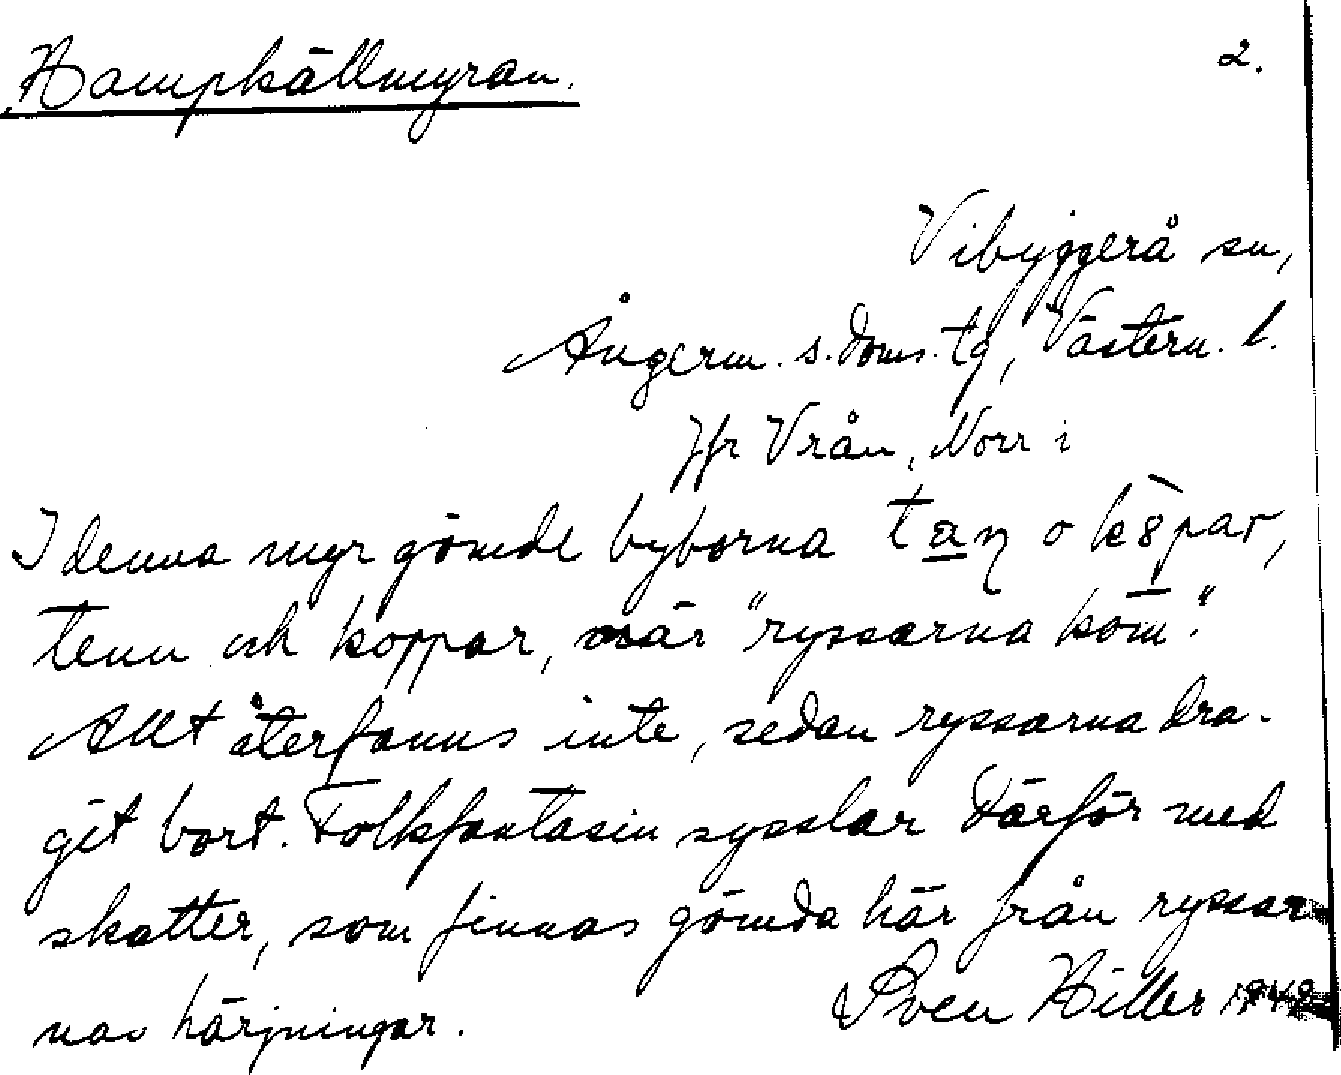 Hampkällmyran. 2.
Vibyggerå sn,
Ångerm. s. doms. tg, Västern. l.
Jfr Vrån, Norr i
I denna myr gömde byborna taŋ o kȣpar,
tenn och koppar, när "ryssarna kom".
Allt återfanns inte, sedan ryssarna dra-
git bort. Folkfantasin sysslar därför med
skatter, som finnas gömda här från ryssar
nas härjningar.
Sven Hiller